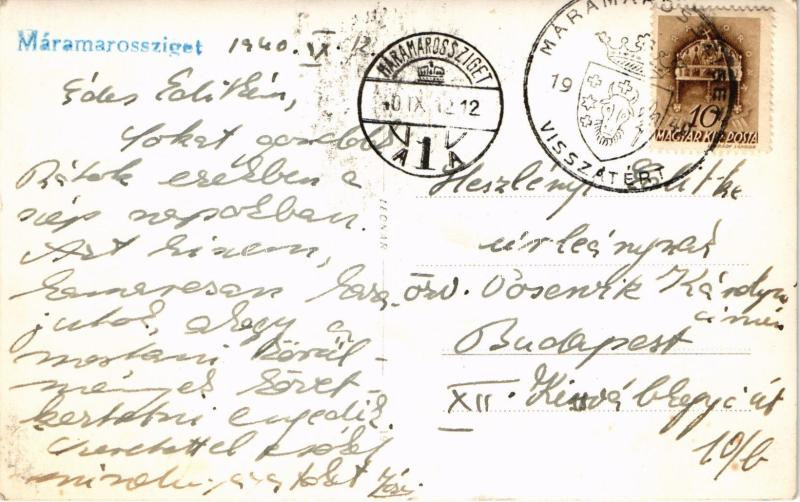 Máramarossziget 1940. IX. 12
Édes Editkém,
Sokat gondolok
Rátok ezekben a
szép napokban.
Azt hiszem,
hamarosan haza
jutok, ahogy a
mostani körül-
mények követ-
keztetni engedik.
Szeretettel csókol
MÁRAMAROSSZIGET
40.IX.12.12
A 1 A
MÁRAMAROSSZIGET
19
VISSZATÉRT
10
MAGYAR KIR. POSTA
Heszlényi Editke
úrleánynak
özv. Posenrik Károlyné
címén
Budapest
XII. Kissvábhegyi út
10/b